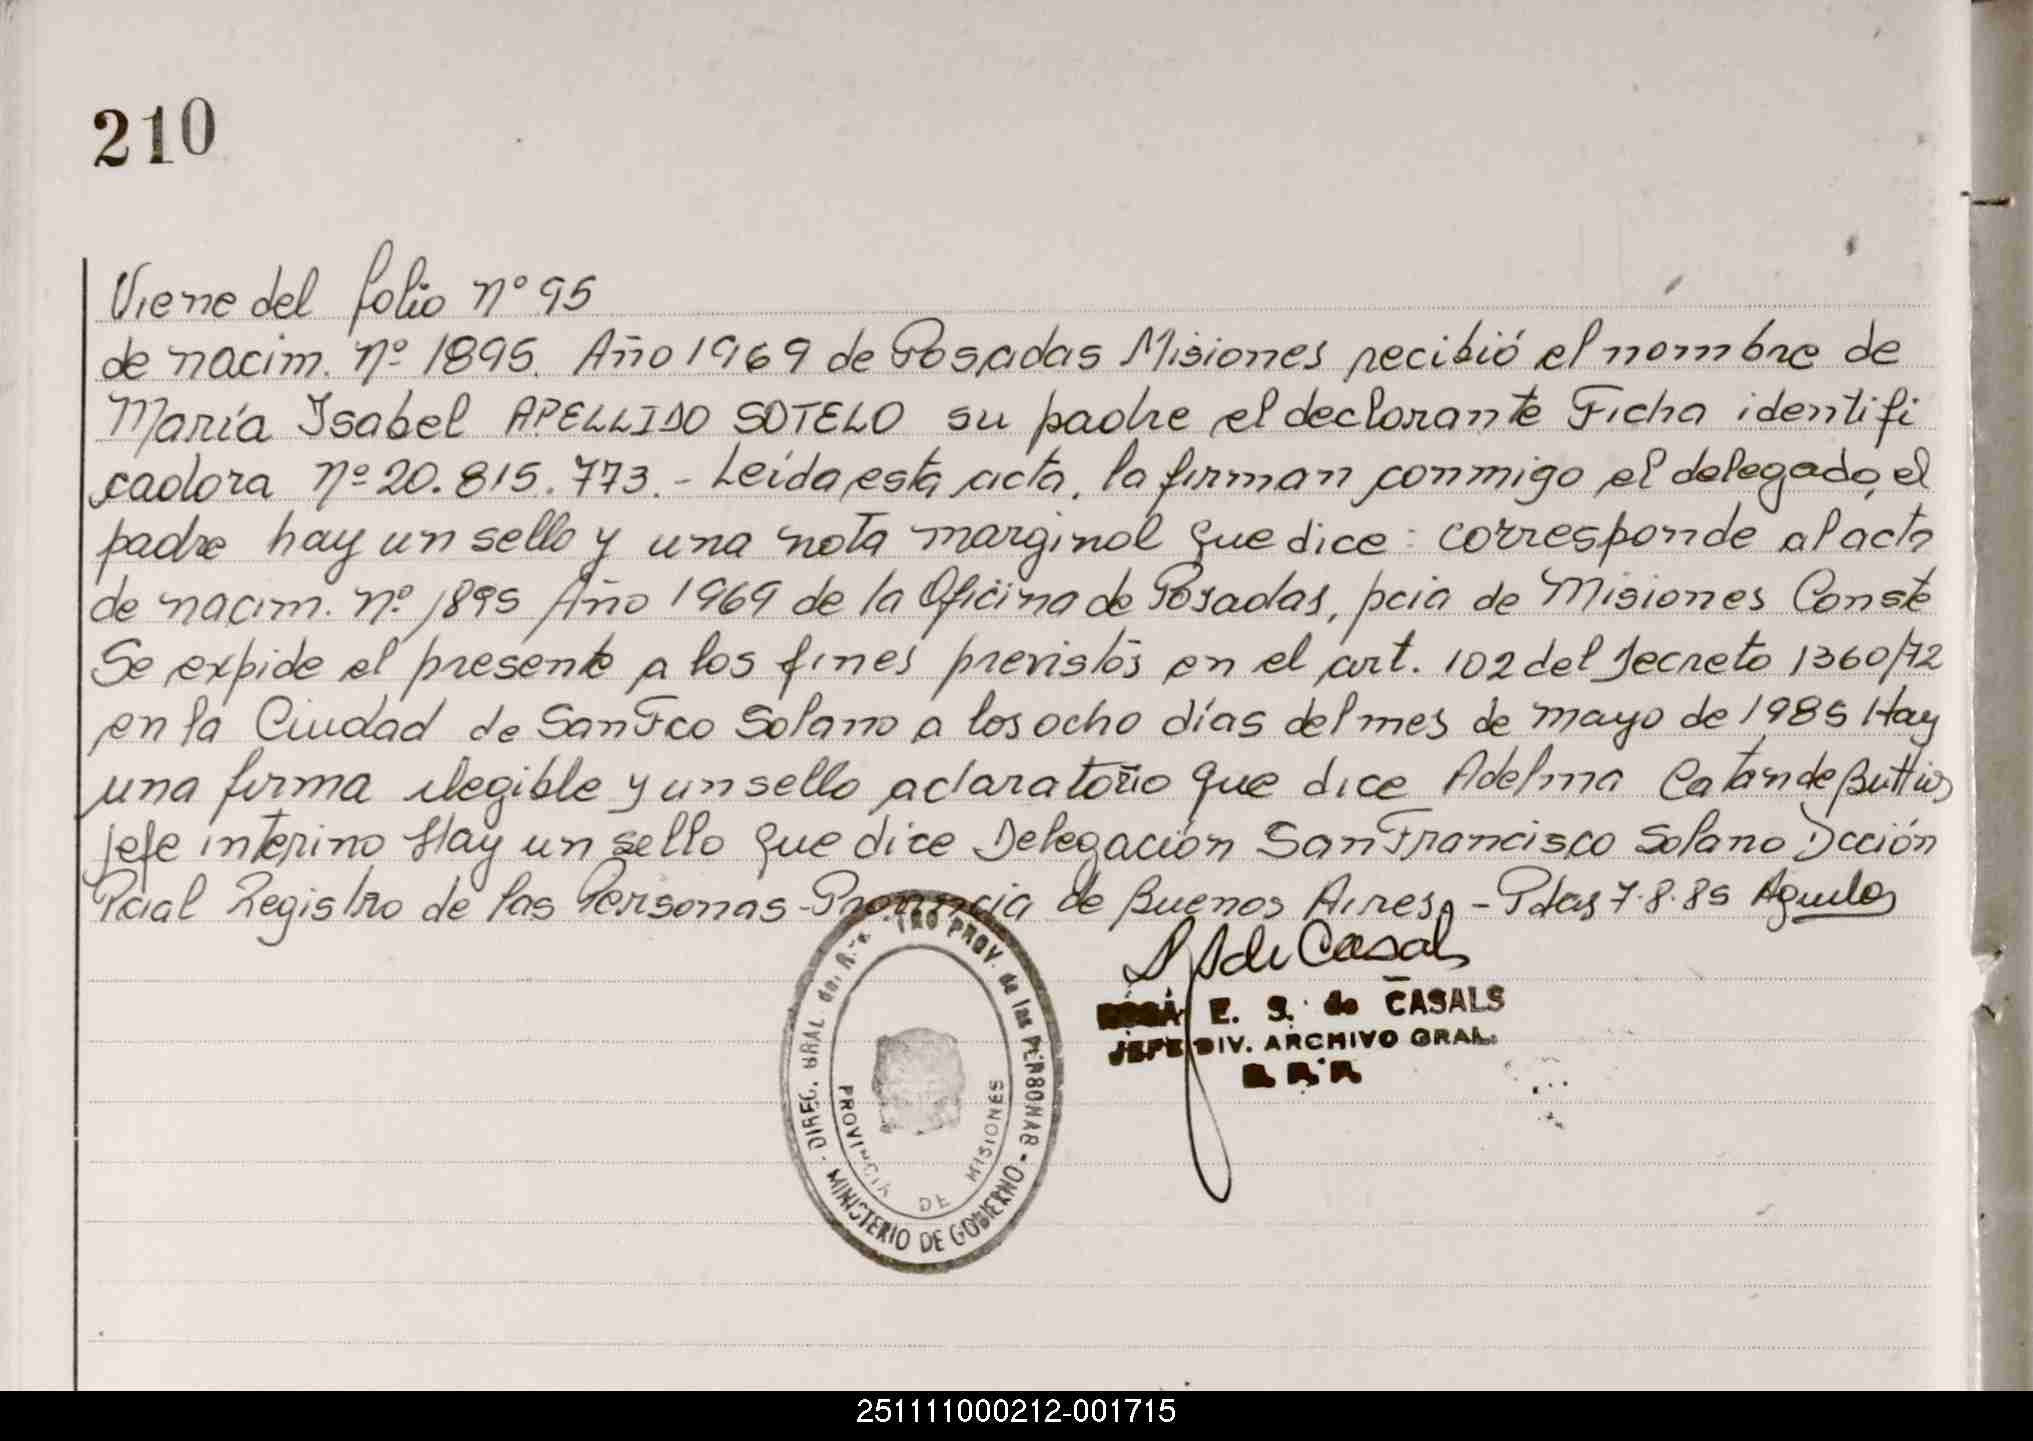 210
Viene del folio nº 95
de nacim. nº 1895. Año 1969 de Posadas Misiones recibió el nombre de
María Isabel APELLIDO SOTELO su padre el declarante Ficha identifi
cadora nº 20.815.773.- Leída esta acta, la firman conmigo el delegado, el
padre hay un sello y una nota marginal que dice: corresponde al acta
de nacim. nº 1895 Año 1969 de la Oficina de Posadas, pcia de Misiones Conste
Se expide el presente a los fines previstos en el art. 102 del Decreto 1360/72
en la Ciudad de San Fco Solano a los ocho días del mes de mayo de 1985 Hay
una firma ilegible y un sello aclaratorio que dice Adelma Catán de
Jefe interino Hay un sello que dice Delegación San Francisco Solano Dcción
Pcial Registro de las Personas - Provincia de Buenos Aires. - Pdas 7.8.85
DIREC. GRAL. del PROV. de las PERSONAS - MINISTERIO DE GOBIERNO -
PROVINCIA DE MISIONES
de Casals
E. S. de CASALS
JEFE DIV. ARCHIVO GRAL.
251111000212-001715